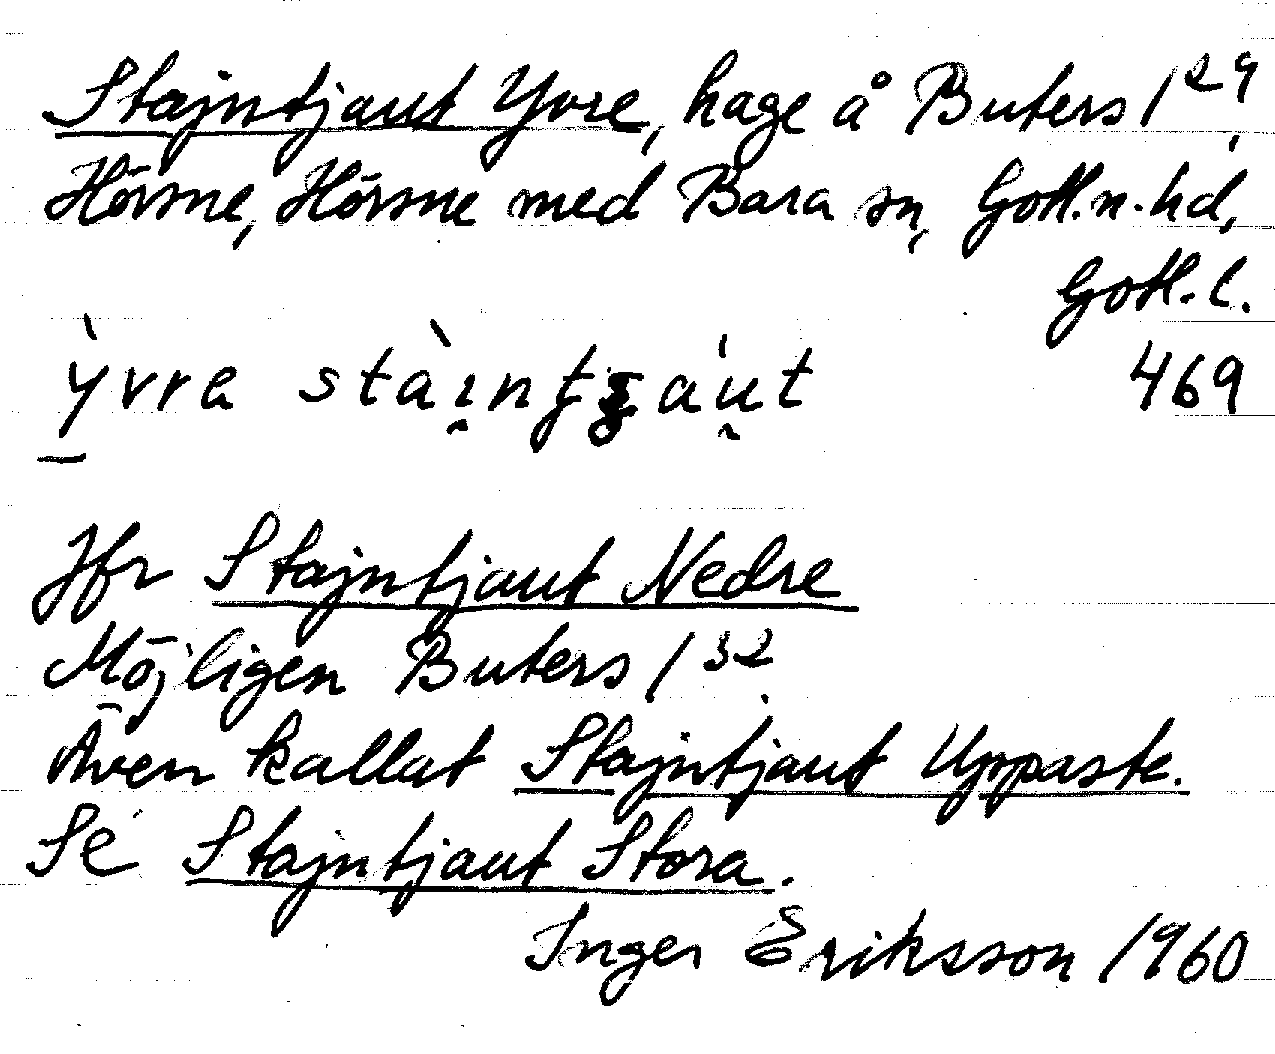 Stajntjaut Yvre, hage å Buters 1²⁹,
Hörsne, Hörsne med Bara sn, Gotl. n. hd,
Gotl. l.
469
Jfr Stajntjaut Nedre
Möjligen Buters 1³².
Även kallat Stajntjaut Uppaste.
Se Stajntjaut Stora.
Inger Eriksson 1960